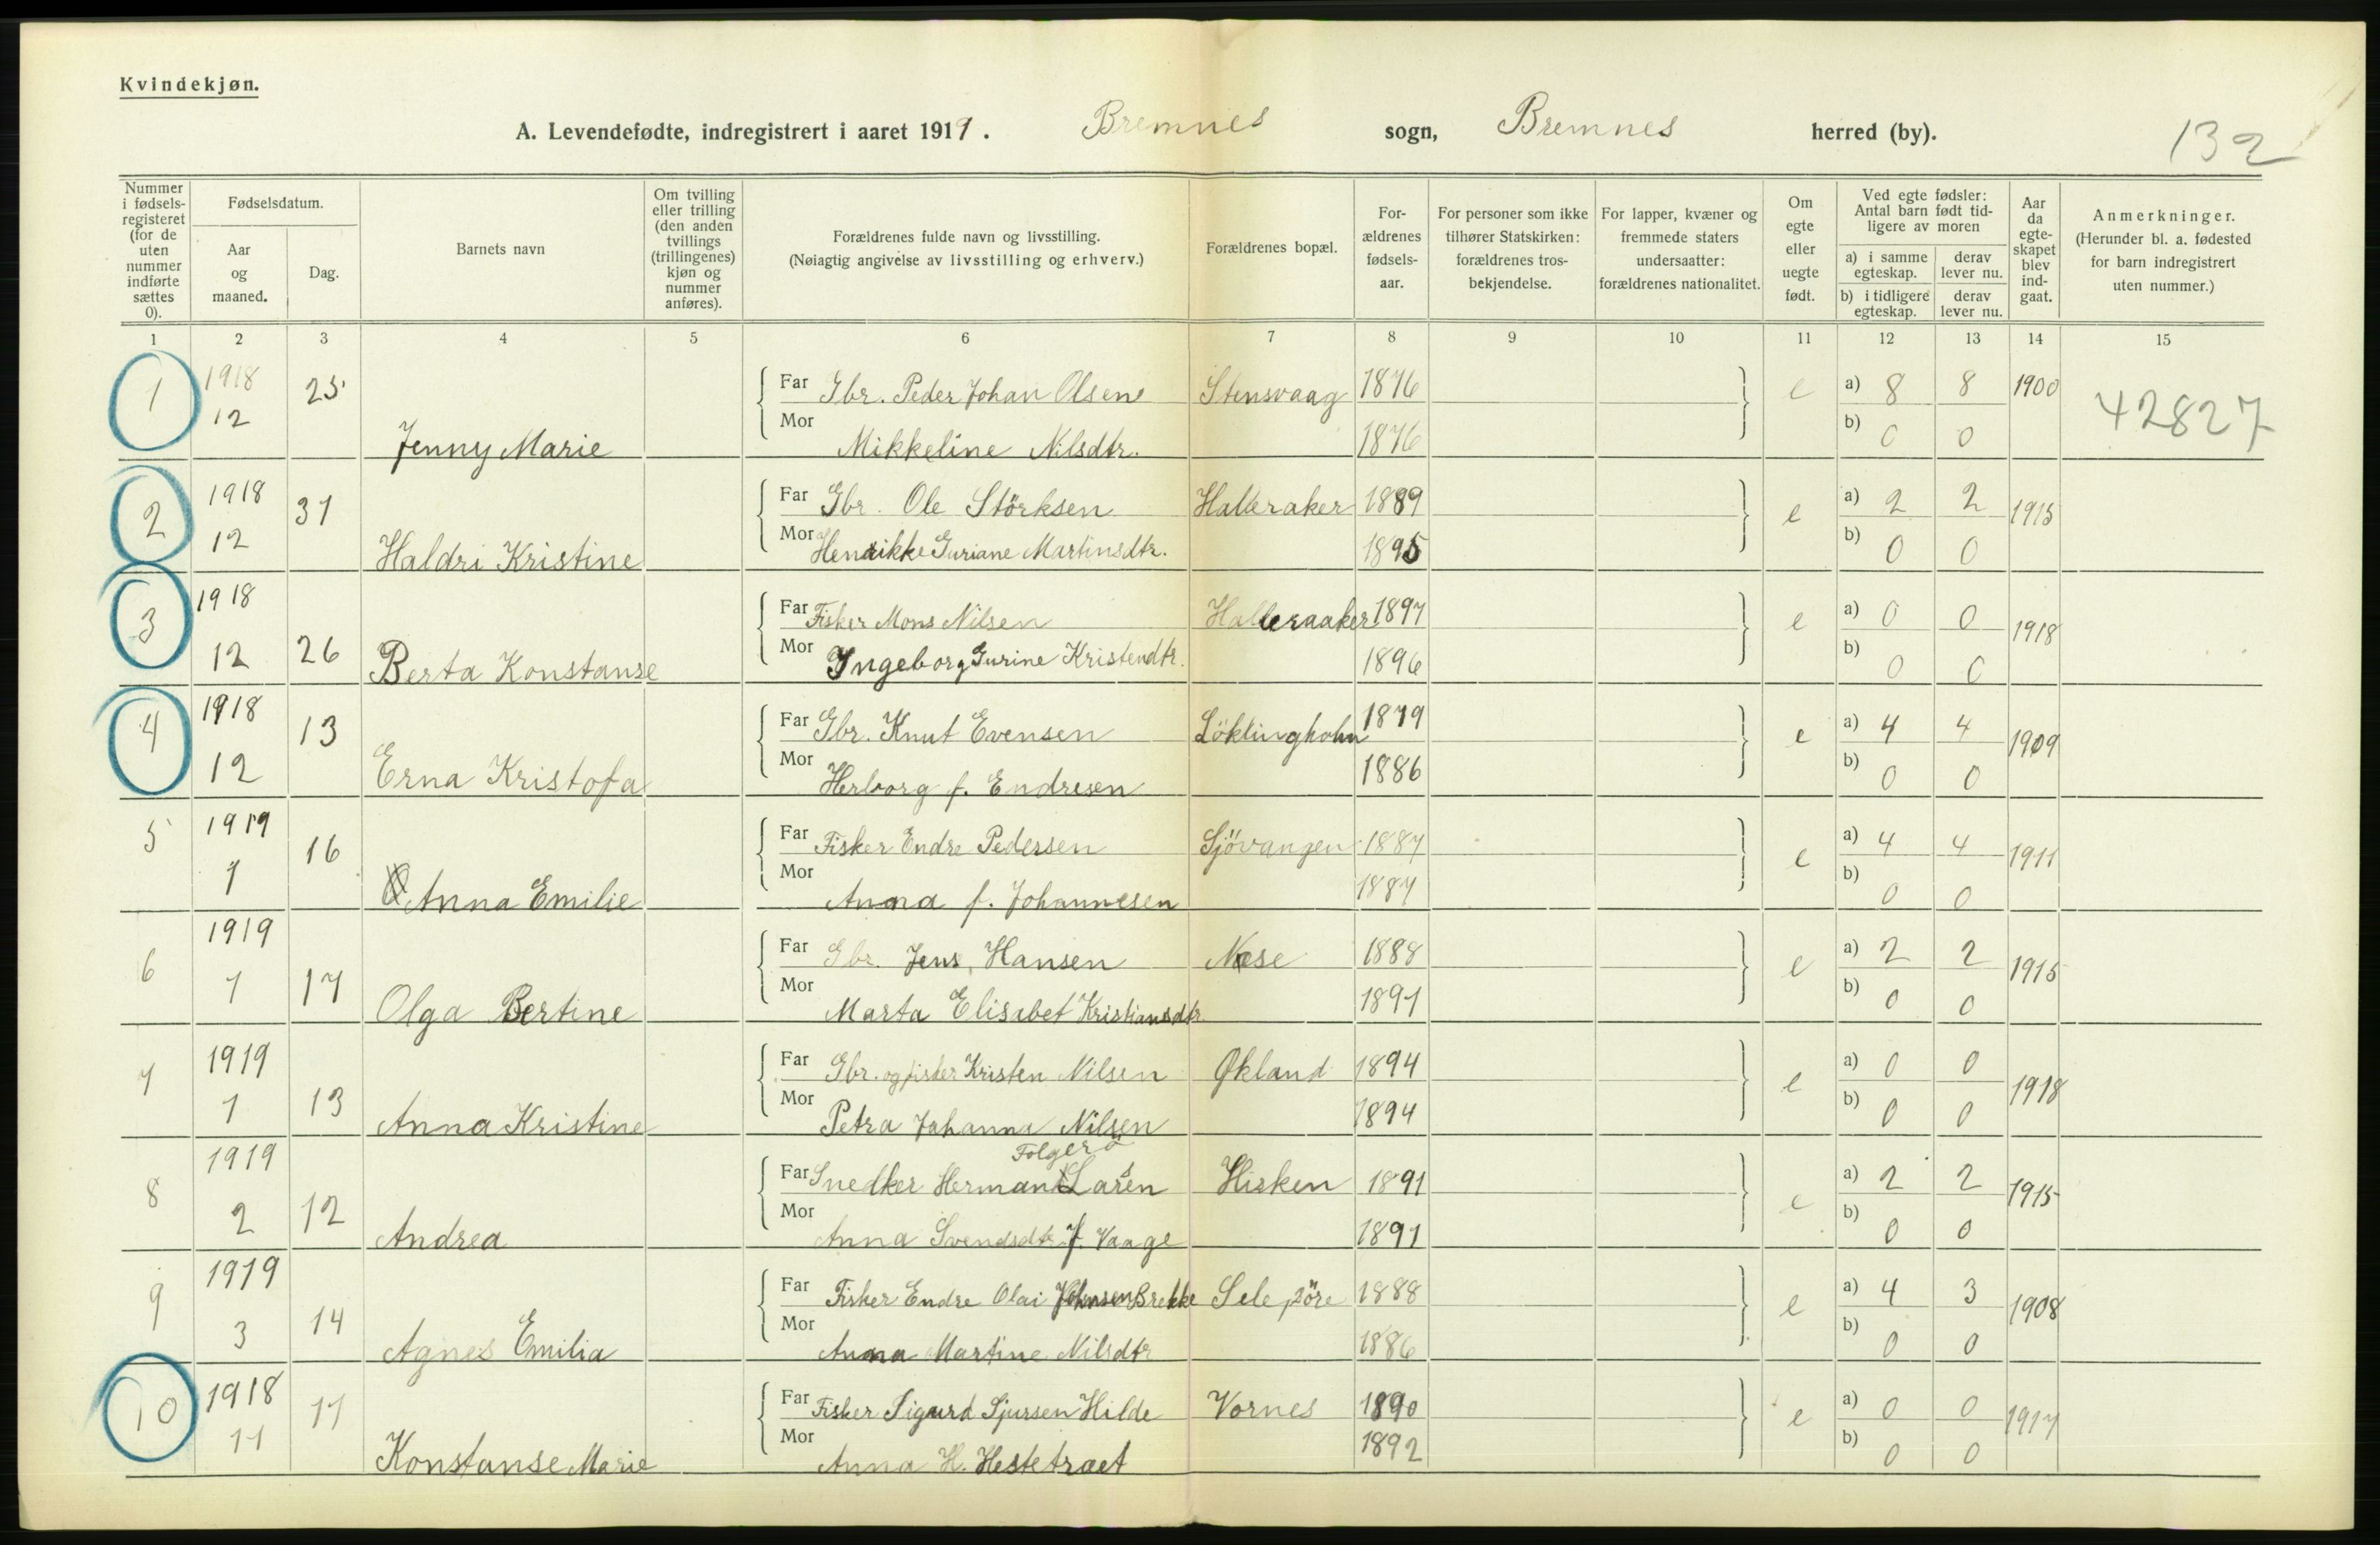 Kvindekjøn.
A. Levendefødte, indregistrert i aaret 1919. Bremnes sogn, Bremnes herred (by). 132
Nummer i fødsels-registeret (for de uten nummer indførte sættes 0).
Fødselsdatum.
Aar og maaned.
Dag.
Barnets navn
Om tvilling eller trilling (den anden tvillings (trillingenes) kjøn og nummer anføres).
Forældrenes fulde navn og livsstilling.
(Nøiagtig angivelse av livsstilling og erhverv.)
Forældrenes bopæl.
For-ældrenes fødsels-aar.
For personer som ikke tilhører Statskirken: forældrenes tros-bekjendelse.
For lapper, kvæner og fremmede staters undersaatter: forældrenes nationalitet.
Om egte eller uegte født.
Ved egte fødsler: Antal barn født tid-ligere av moren
a) i samme egteskap.
derav lever nu.
b) i tidligere egteskap.
derav lever nu.
Aar da egte-skapet blev ind-gaat.
Anmerkninger.
(Herunder bl. a. fødested for barn indregistrert uten nummer.)
1 2 3 4 5 6 7 8 9 10 11 12 13 14 15
1 1918 25 Far Gbr. Peder Johan Olsen Stensvaag 1876 e a) 8 8 1900 42827
12 Jenny Marie Mor Mikkeline Nilsdtr. 1876 b) 0 0
2 1918 31 Far Gbr. Ole Störksen Halleraker 1889 e a) 2 2 1915
12 Haldri Kristine Mor Henrikke Guriane Martinsdtr. 1895 b) 0 0
3 1918 Far Fisker Mons Nilsen Halleraaker 1897 e a) 0 0 1918
12 26 Berta Konstanse Mor Ingeborg Gurine Kristendtr. 1896 b) 0 0
4 1918 13 Far Gbr. Knut Evensen Löklingholm 1879 e a) 4 4 1909
12 Erna Kristofa Mor Herborg f. Endresen 1886 b) 0 0
5 1919 16 Far Fisker Endre Pedersen Sjövangen 1887 e a) 4 4 1911
1 Anna Emilie Mor Anna f. Johannesen 1887 b) 0 0
6 1919 Far Gbr. Jens Hansen Næse 1888 e a) 2 2 1915
1 17 Olga Bertine Mor Marta Elisabet Kristiansdtr. 1891 b) 0 0
7 1919 Far Gbr. og fisker Kristen Nilsen Økland 1894 e a) 0 0 1918
1 13 Anna Kristine Mor Petra Johanna Nilsen 1894 b) 0 0
Folgerö
8 1919 Far Snedker Herman Larsen Hisken 1891 e a) 2 2 1915
2 12 Andrea Mor Anna Svendsdtr. f. Vaage 1891 b) 0 0
9 1919 Far Fisker Endre Olai Johnsen Brekke Sele, söre 1888 e a) 4 3 1908
3 14 Agnes Emilia Mor Anna Martine Nilsdtr 1886 b) 0 0
10 1918 11 Far Fisker Sigurd Sjursen Hilde Vornes 1890 e a) 0 0 1917
11 Konstanse Marie Mor Anna H. Hestetræet 1892 b) 0 0